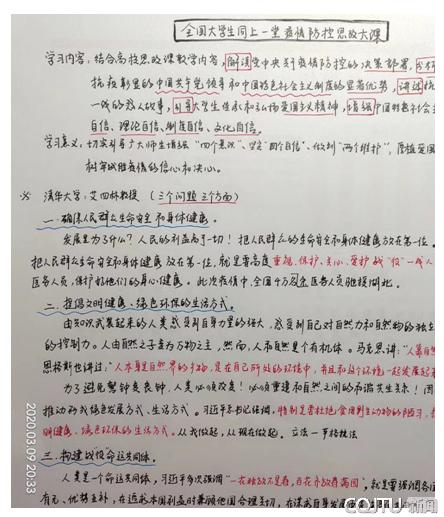 全国大学生同上一堂疫情防控思政大课
学习内容：结合高校思政课教学内容，解读党中央关于疫情防控的决策部署，分析
抗疫彰显的中国共产党领导和中国特色社会主义制度的显著优势，讲述抗
一线的感人故事，引导大学生传承和弘扬爱国主义精神，增强中国特色社会主
自信、理论自信、制度自信、文化自信。
学习意义：切实引导广大师生增强“四个意识”、坚定“四个自信”、做到“两个维护”，厚植爱国
树牢战胜疫情的信心和决心。
※ 清华大学：艾四林教授（三个问题 三个方面）
一、确保人民群众生命安全和身体健康。
发展是为了什么？人民的利益高于一切！把人民群众的生命安全和身体健康放在第一位。
把人民群众生命安全和身体健康放在第一位，就是要高度重视、保护、关心、爱护战“疫”一线人
医务人员，保护好他们的身心健康。此次疫情中，全国4万余医务人员驰援湖北。
二、提倡文明健康、绿色环保的生活方式。
由知识武装起来的人类感受到自身力量的强大，感受到自己对自然力和自然物的独立
的控制力。人由自然之子变为万物之主，然而，人和自然是个有机体。马克思讲：“人靠自然
恩格斯也讲过，“人本身是自然界的产物，是在自己所处的环境中，并且和这个环境一起发展起来
为了避免警钟变丧钟，人类必须改变！必须重建和自然之间的和谐共生关系！因
推动形成绿色发展方式、生活方式。习近平总书记强调，特别是要杜绝食用野生动物的陋习，
明健康、绿色环保的生活方式。从我做起，从现在做起。立法一严格执法
三、构建战疫命运共同体。
人类是一个命运共同体，习近平多次强调“一花独放不是春，百花齐放春满园”，就是要强调各国
有无、优势互补，在追求本国利益时兼顾他国合理关切，在谋求自身发展
2020.03.09 20:33
CQJTU 新闻